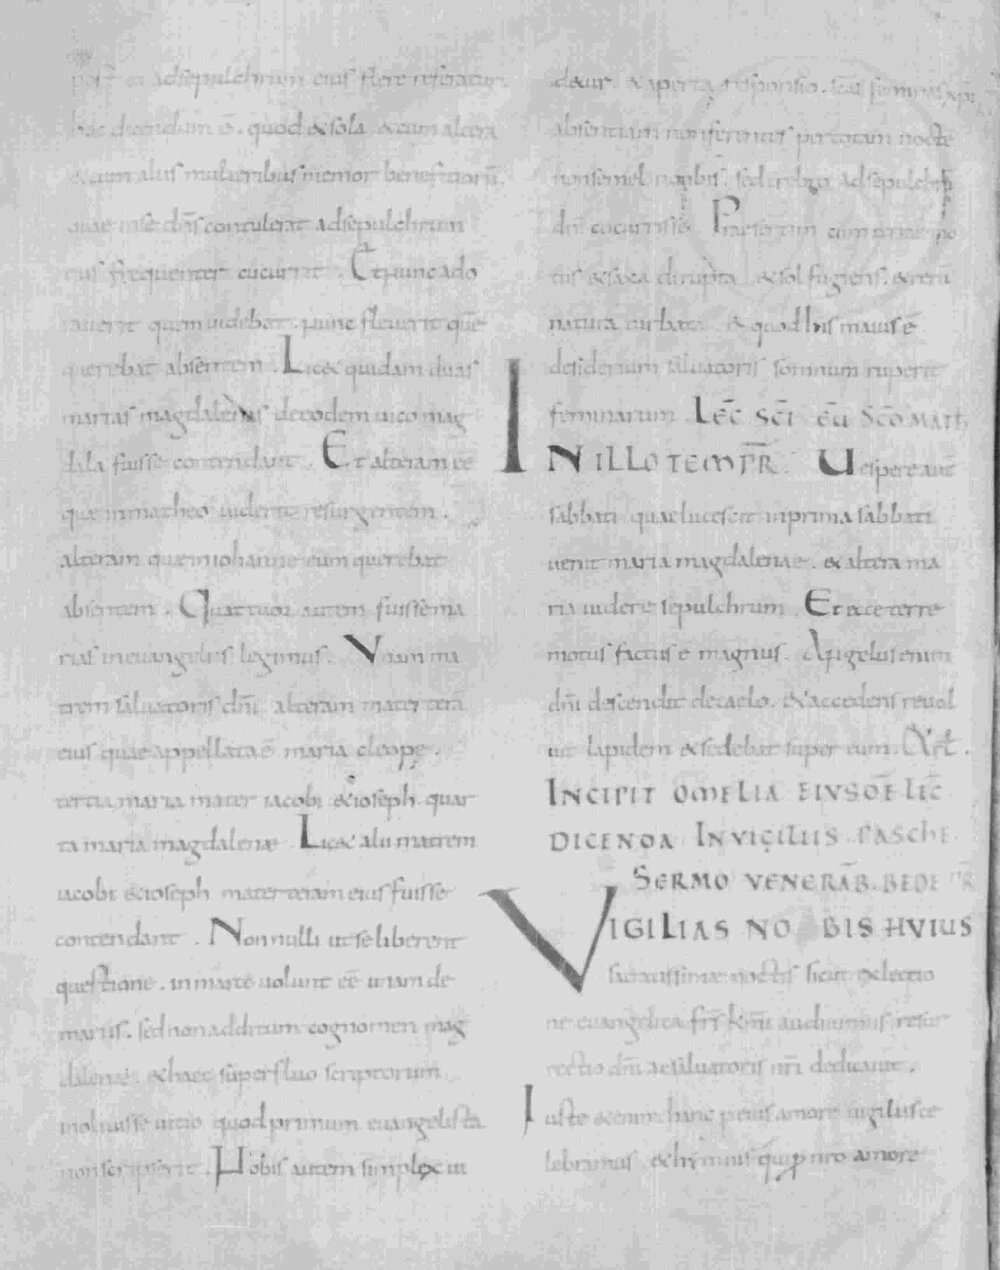 adsepulchrum eius flere referatur.
hoc dicendum ē. quod & sola. & cum altera
& cum aliis mulieribus memor beneficiorū.
quae in se dn̄s contulerat adsepulchrum
eius frequenter cucurrit. Et nunc ado
rauerit quem uidebat. nunc fleuerit quē
querebat absentem. Lic& quidam duas
marias magdalenas deeodem uico mag
dala fuisse contendant. Et alteram ee
que inmatheo uiderit resurgentem.
alteram quae iniohanne eum querebat
absentem. Quattuor autem fuisse ma
rias ineuangeliis legimus. Vnam ma
trem saluatoris dn̄i alteram materterā
eius quae appellata ē maria cleope.
tertia maria mater iacobi & ioseph. quar
ta maria magdalenae. Lic& alii matrem
iacobi & ioseph materteram eius fuisse
contendant. Nonnulli ut se liberent
questione. inmarco uolunt eē unam de
mariis. sed non additum cognomen mag
dalenae. & haec superfluo scriptorum
inoluisse uitio quod primum euangelista
non scripserit. Nobis autem simplex ui
detur. & aperta responsio. sc̄as feminas xpī
absentiam non ferentes per totam noctē
non semel non bis. sed crebro adsepulchrū
dn̄i cucurrisse. Praesertim cum terrae mo
tus & saxa dirupta. & sol fugiens. & rerū
natura turbata. & quod his maius ē
desiderium saluatoris somnum ruperit
feminarum. Lec̄ sc̄i eū sc̄d math
IN ILLO TEMPR̄. Uespere aut̄
sabbati quae lucescit inprima sabbati
uenit maria magdalenae. & altera ma
ria uidere sepulchrum. Et ecce terre
motus factus ē magnus. Angelus enim
dn̄i descendit decaelo. & accedens reuol
uit lapidem & sedebat super eum.
INCIPIT OMELIA EIVSDĒ LEC̄
DICENDA IN VIGILIIS PASCHE
SERMO VENERAB. BEDE PR̄
VIGILIAS NOBIS HVIUS
sacratissimae noctis sicut ex lectio
ne euangelica fr̄s km̄i audiuimus resur
rectio dn̄i ac saluatoris nr̄i dedicauit.
Iuste &enim hanc peius amore uigilus ce
lebramus. & hymnus qui pro nr̄o amore